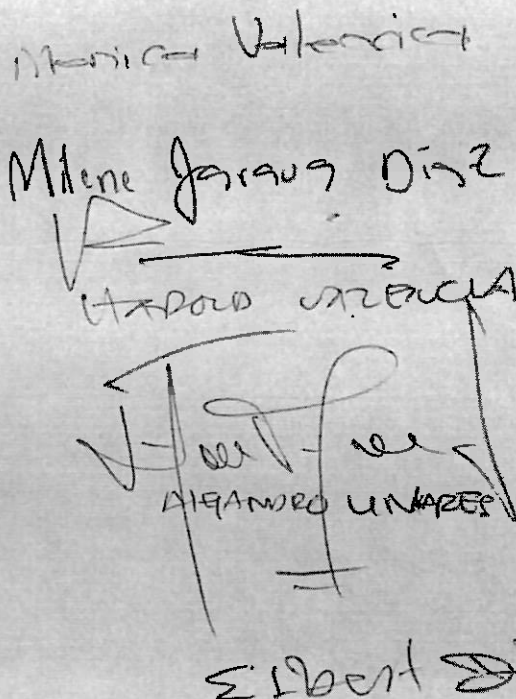 Monica Valencia
Milene Jaraua Diaz
HAROLD VALENCIA
AlEJANDRO LINARES
Eilbert